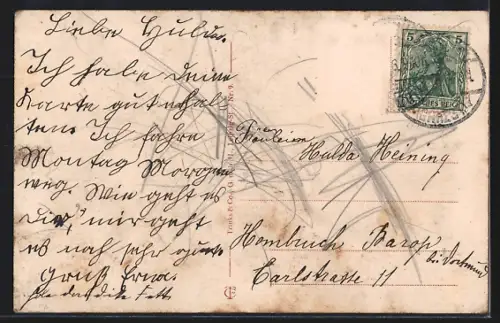 Liebe Hulda.
Ich habe deine
Karte gut erhal-
ten. Ich fahre
Montag Morgen
weg. Wie geht es
Dir, mir geht
es noch sehr gut.
Gruß Erna.
Fräulein
Hulda Heining
Hombruch Barop
bei Dortmund
Carlstrasse 11
5 5